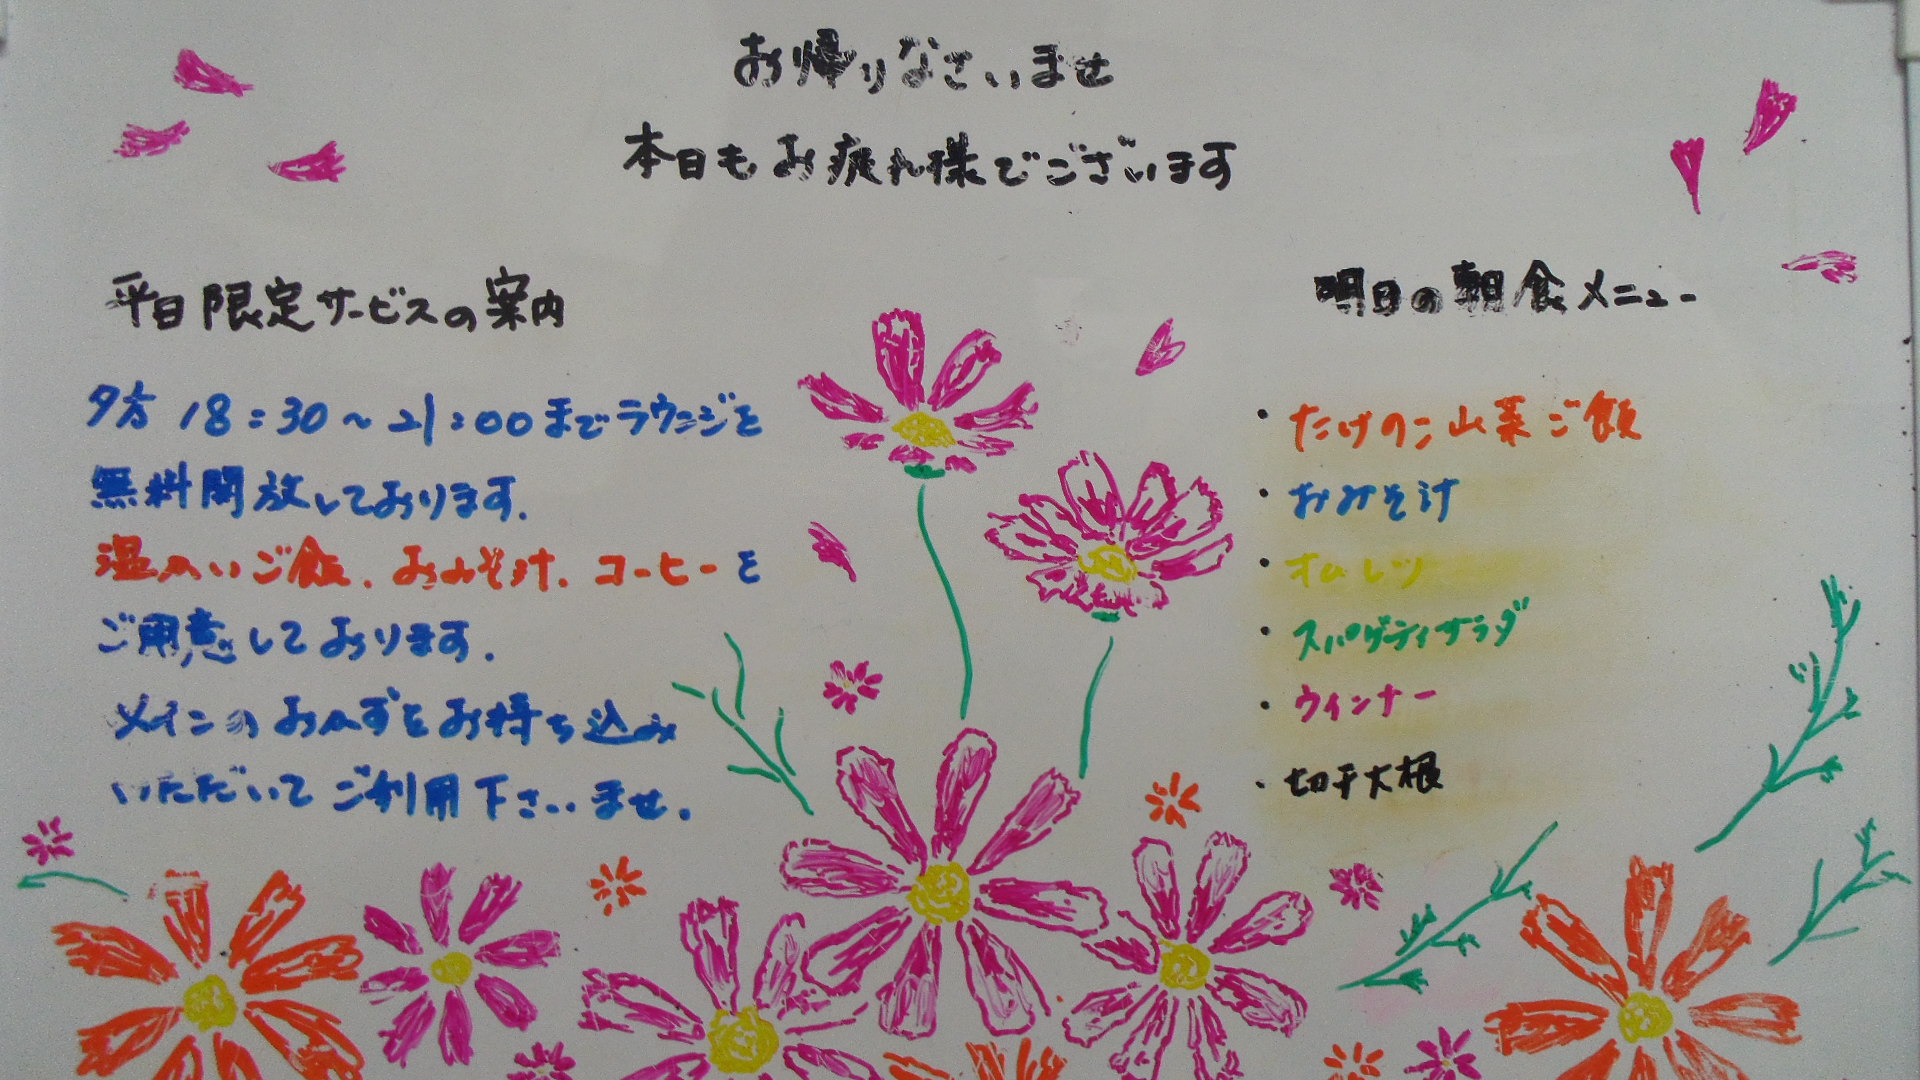 お帰りなさいませ
本日もお疲れ様でございます
平日限定サービスの案内
夕方 18:30〜21:00までラウンジを
無料開放しております.
温かいご飯、おみそ汁、コーヒーを
ご用意しております.
メインのおかずをお持ち込み
いただいてご利用下さいませ.
明日の朝食メニュー
・たけのこ山菜ご飯
・おみそ汁
・オムレツ
・スパゲティサラダ
・ウィンナー
・切干大根